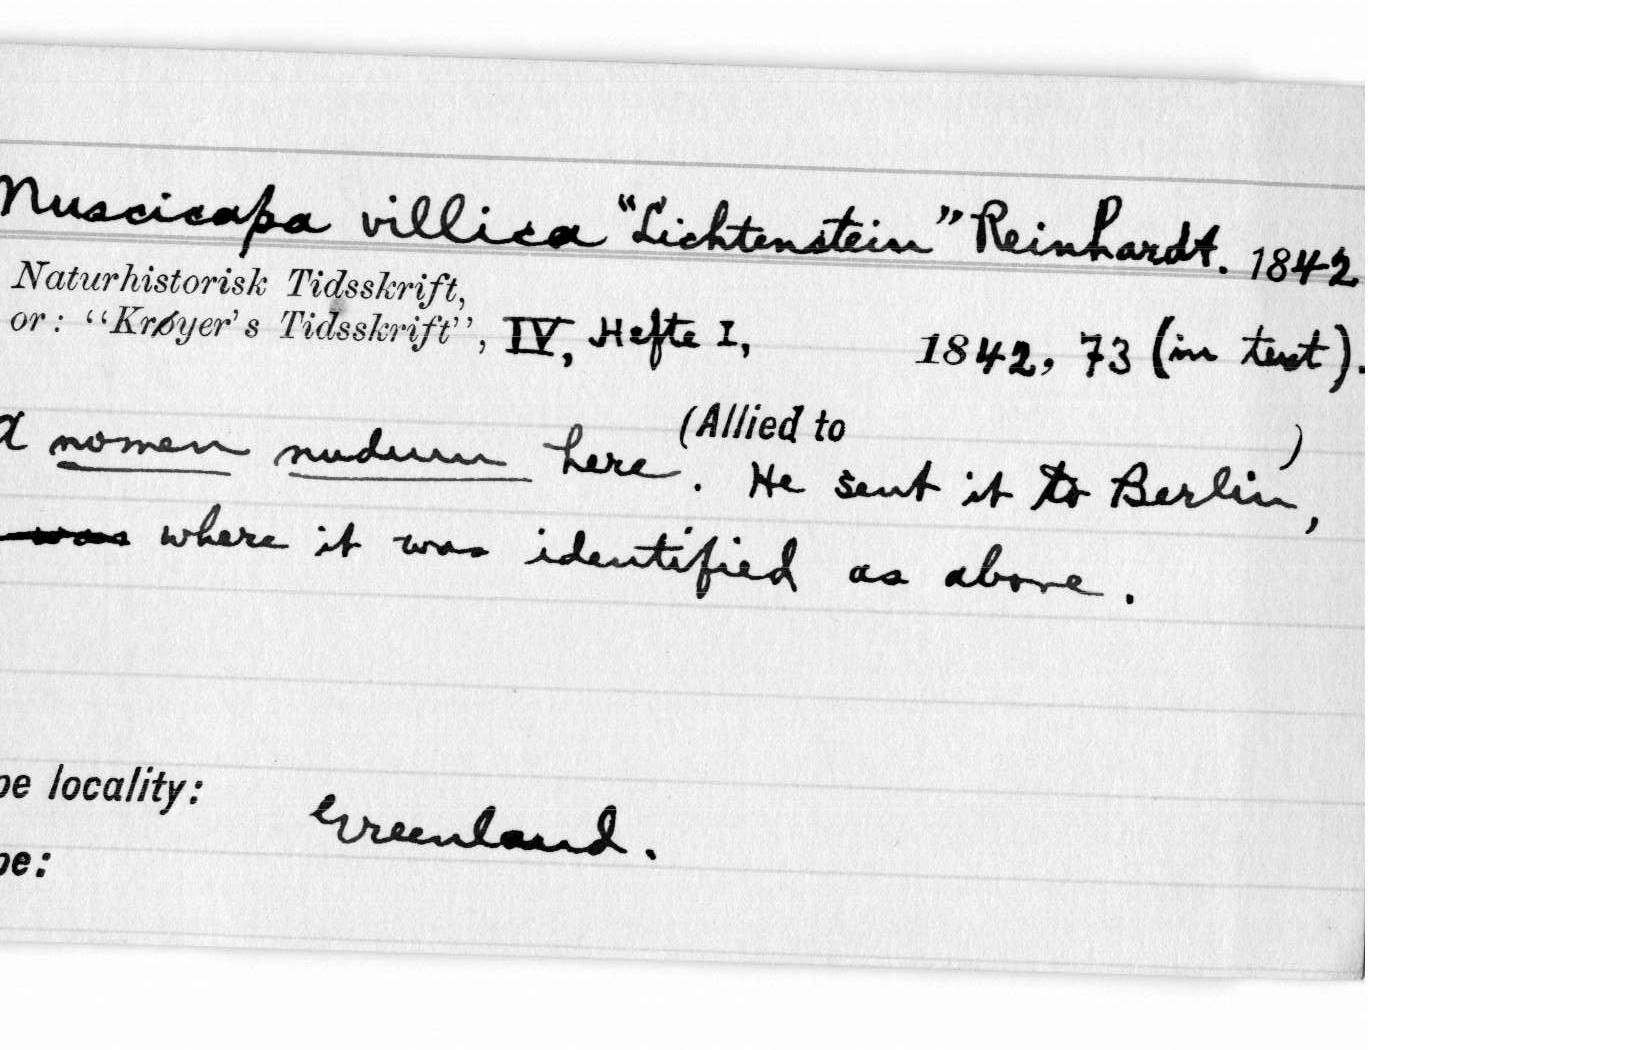 Muscicapa villica "Lichtenstein" Reinhardt. 1842
Naturhistorisk Tidsskrift,
or: "Krøyer's Tidsskrift", IV, Hefte I, 1842, 73 (in text).
(Allied to )
A nomen nudum here. He sent it to Berlin,
was where it was identified as above.
pe locality: Greenland.
pe: